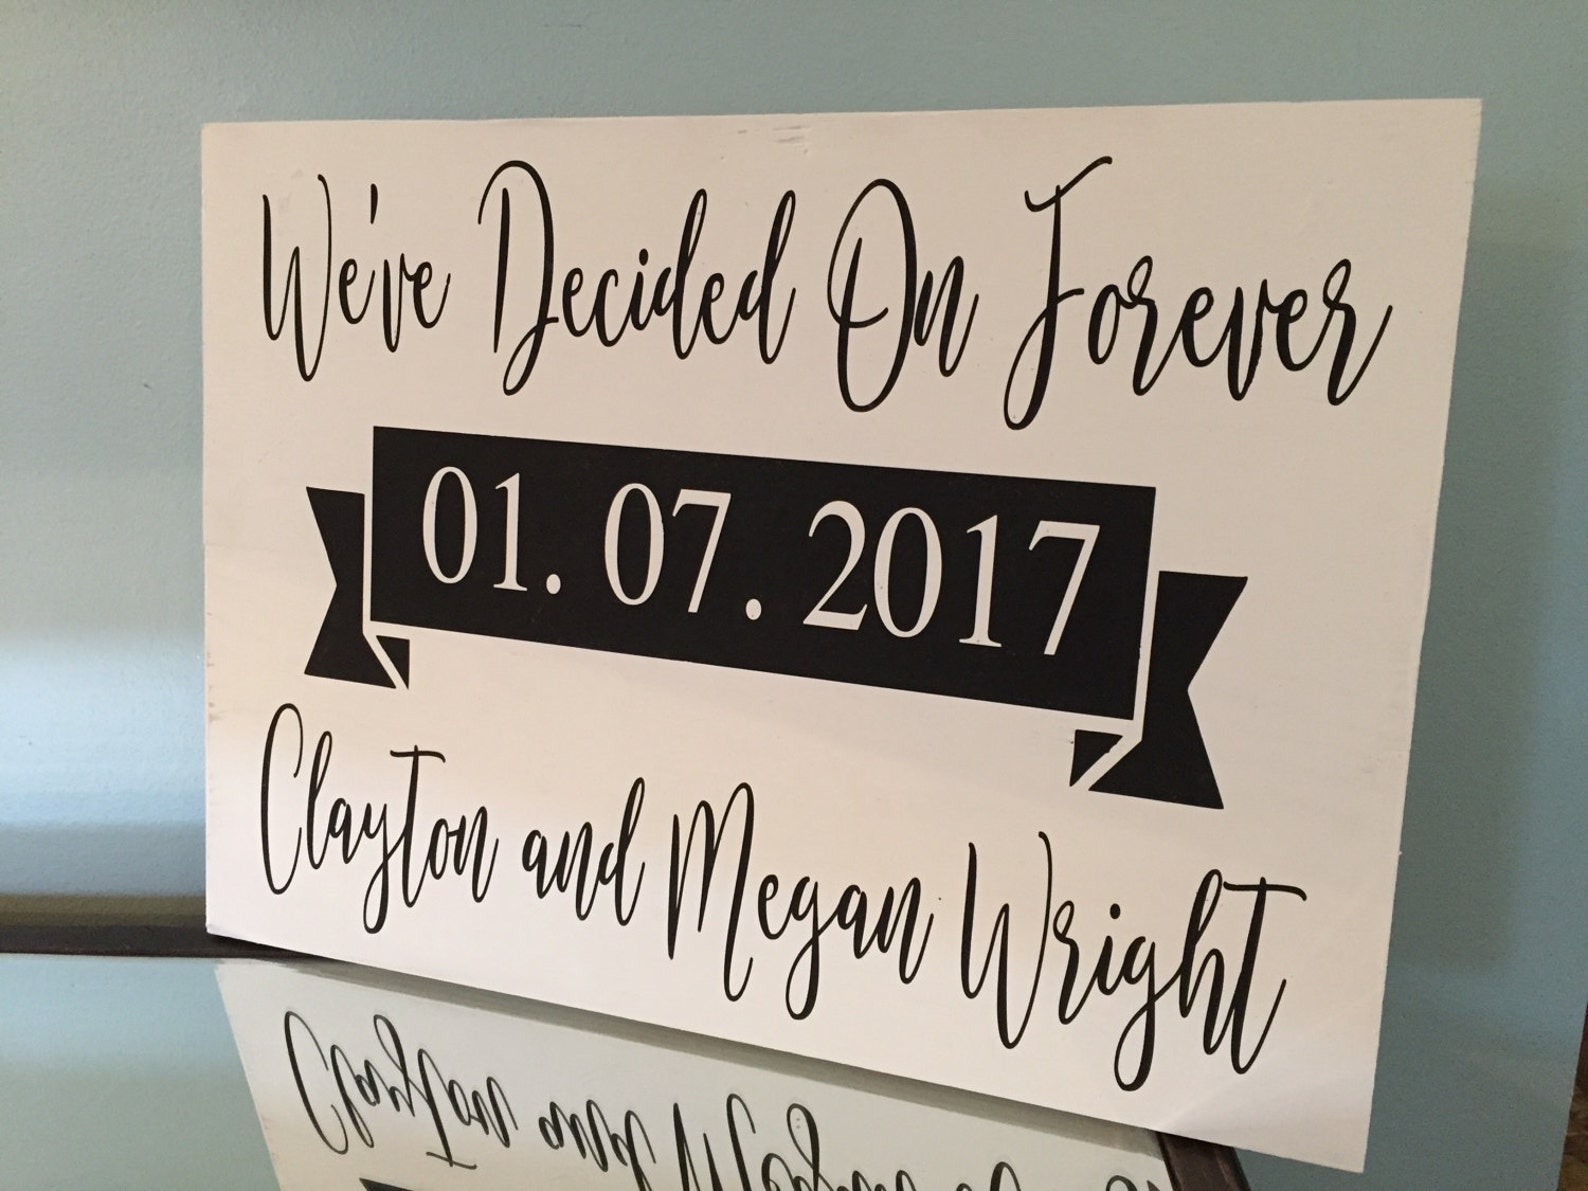 We've Decided On Forever
01. 07. 2017
Clayton and Megan Wright